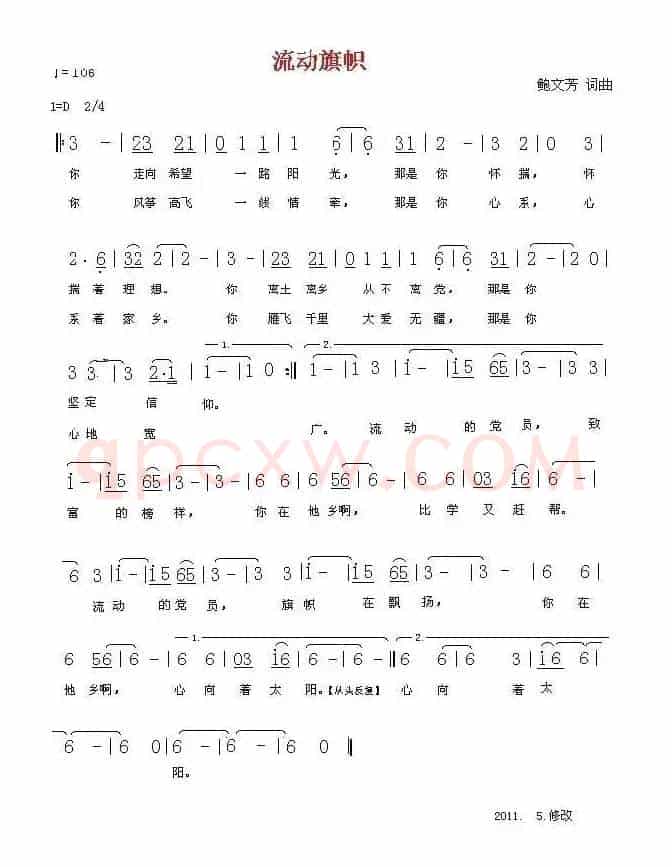 流动旗帜
♩=106
鲍文芳 词曲
1=D 2/4
3 - | 23 21 | 0 1 1 | 1 6 | 6 31 | 2 - | 3 2 | 0 3 |
你 走向 希望 一 路 阳 光， 那是 你 怀 揣， 怀
你 风筝 高飞 一 线 情 牵， 那是 你 心 系， 心
2 · 6 | 32 2 | 2 - | 3 - | 23 21 | 0 1 1 | 1 6 | 6 31 | 2 - | 2 0 |
揣 着 理 想。 你 离土 离乡 从 不 离 党， 那是 你
系 着 家 乡。 你 雁飞 千里 大 爱 无 疆， 那是 你
1. 2.
3 3 · | 3 2·1 | 1 - | 1 0 :|| 1 - | 1 3 | i - | i5 65 | 3 - | 3 3 |
坚 定 信 仰。
心 地 宽 广。 流 动 的 党 员， 致
i - | i5 65 | 3 - | 3 3 | 6 6 | 6 56 | 6 - | 6 6 | 03 i6 | 6 -
富 的 榜 样， 你 在 他 乡啊， 比 学 又 赶 帮。
6 3 | i - | i5 65 | 3 - | 3 3 | i - | i5 65 | 3 - | 3 - | 6 6
流 动 的 党 员， 旗 帜 在 飘 扬， 你 在
1. 2.
6 56 | 6 - | 6 6 | 03 i6 | 6 - || 6 6 | 2 3 | i6 6
他 乡啊， 心 向 着 太 阳。【从头反复】心 向 着 太
6 - | 6 0 | 6 - | 6 - | 6 - | 6 0 ||
阳。
qpcxw.COM
2011. 5.修改